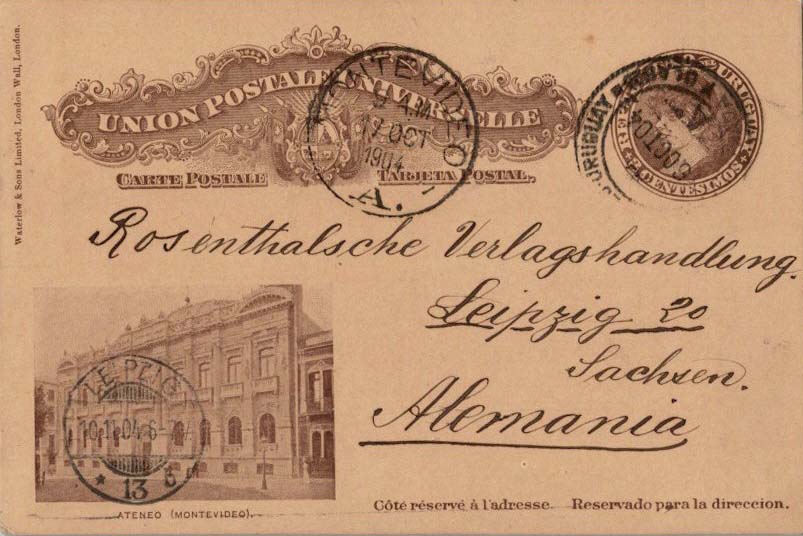 Waterlow & Sons Limited, London Wall, London.
UNION POSTALE UNIVERSELLE
CARTE POSTALE TARJETA POSTAL.
MONTEVIDEO
9 A.M
17 OCT
1904
A.
URUGUAY
CENTESIMOS
Rosenthalsche Verlagshandlung.
Leipzig 20
Sachsen.
Alemania
LEIPZIG
10.11.04.6-
* 13
ATENEO (MONTEVIDEO).
Côté réservé à l'adresse. Reservado para la direccion.